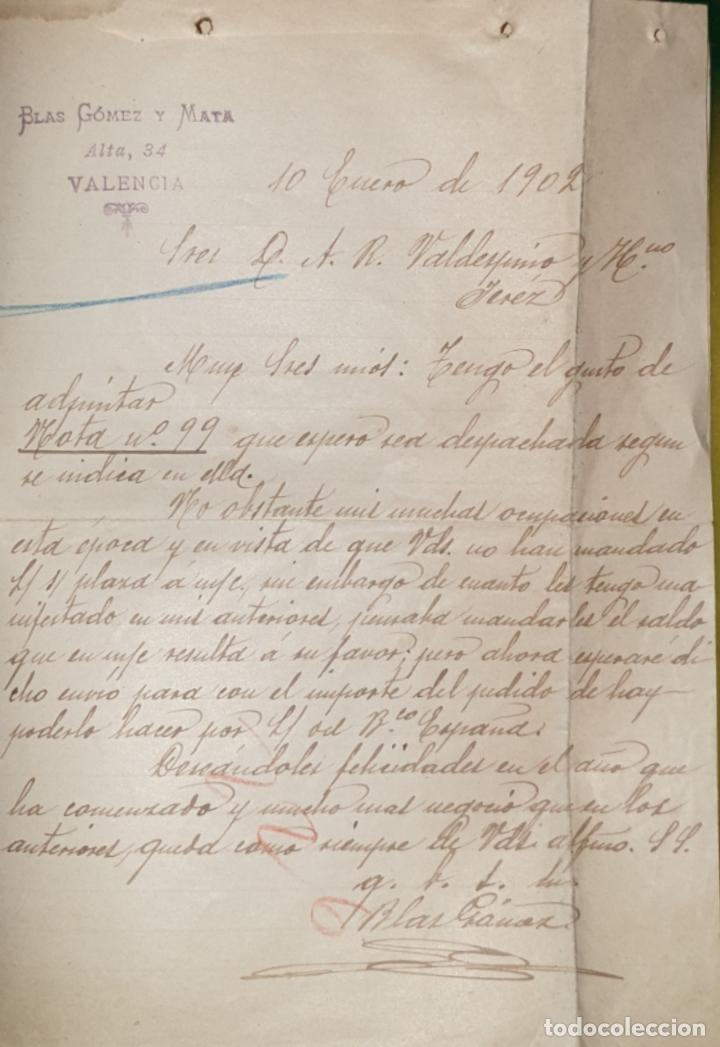 BLAS GÓMEZ Y MATA
Alta, 34
VALENCIA
10 Enero de 1902
Sres D. A. R. Valdespino y Hno
Jerez
Muy Sres mios: Tengo el gusto de
adjuntar
Nota nº. 99 que espero sea despachada segun
se indica en ella.
No obstante mis muchas ocupaciones en
esta época y en vista de que Vds. no han mandado
L/ s/ plaza á m/c, sin embargo de cuanto les tengo ma
nifestado en mis anteriores, pensaba mandarles el saldo
que en m/c resulta á su favor; pero ahora esperaré di
cho envio para con el importe del pedido de hoy
poderlo hacer por L/ del Bco España.
Deseándoles felicidades en el año que
ha comenzado y mucho mas negocio que en los
anteriores, queda como siempre de Vds. affmo. S.S.
q. b. s. m.
Blas Gómez
todocoleccion